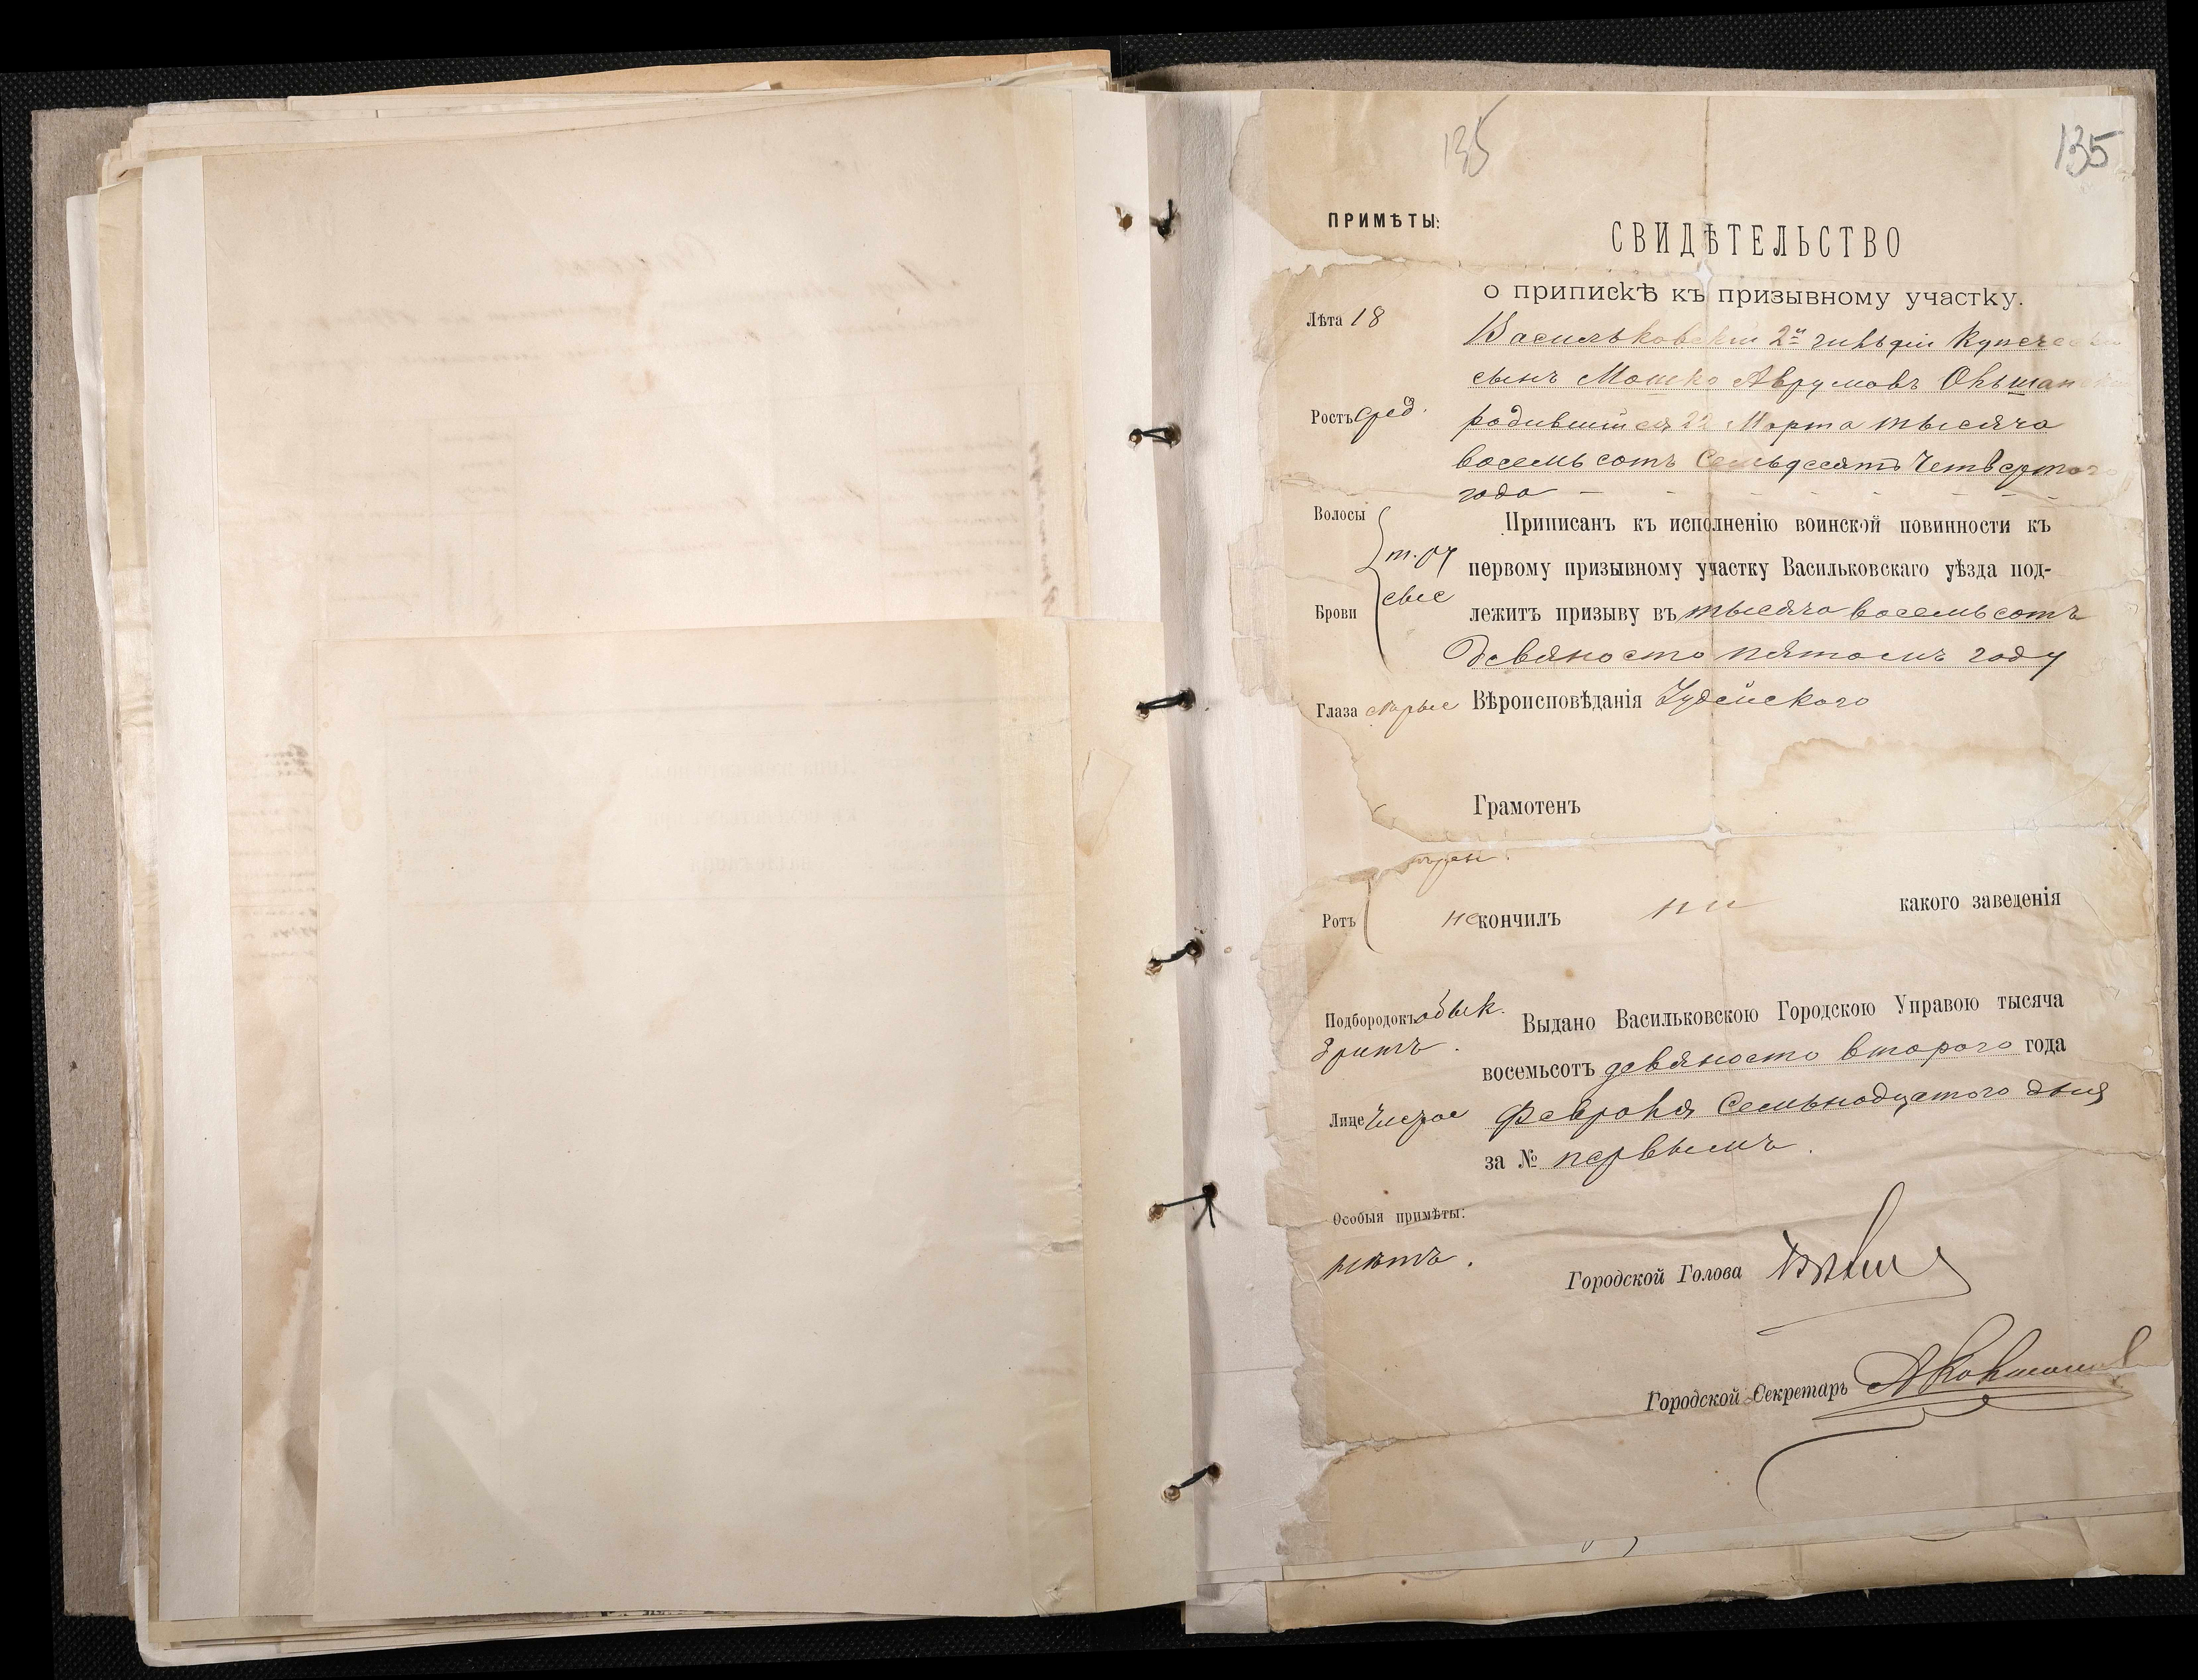 135
135
ПРИМѢТЫ:
СВИДѢТЕЛЬСТВО
о припискѣ къ призывному участку.
Лѣта 18
Васильковскій 2й гильдіи Купечес
сынъ Мошко Аврумовъ Ольшан
Ростъ сред.
родившийся 22 Марта тысяча
восемьсотъ Семьдесятъ Четвертого
года
Волосы
Приписанъ къ исполненію воинской повинности къ
т. ру
первому призывному участку Васильковскаго уѣзда под-
сые
Брови
лежитъ призыву въ тысяча восемьсотъ
Девяносто пятомъ году
Глаза карые
Вѣроисповѣданія Іудейского
Грамотенъ
Ротъ
не кончилъ ни какого заведенія
Подбородокъ обык.
Выдано Васильковскою Городскою Управою тысяча
бритъ.
восемьсотъ девяносто второго года
Лице Чистое
Февраля Семьнадцатого дня
за № первымъ.
Особыя примѣты:
нѣтъ.
Городской Голова
Городской Секретарь